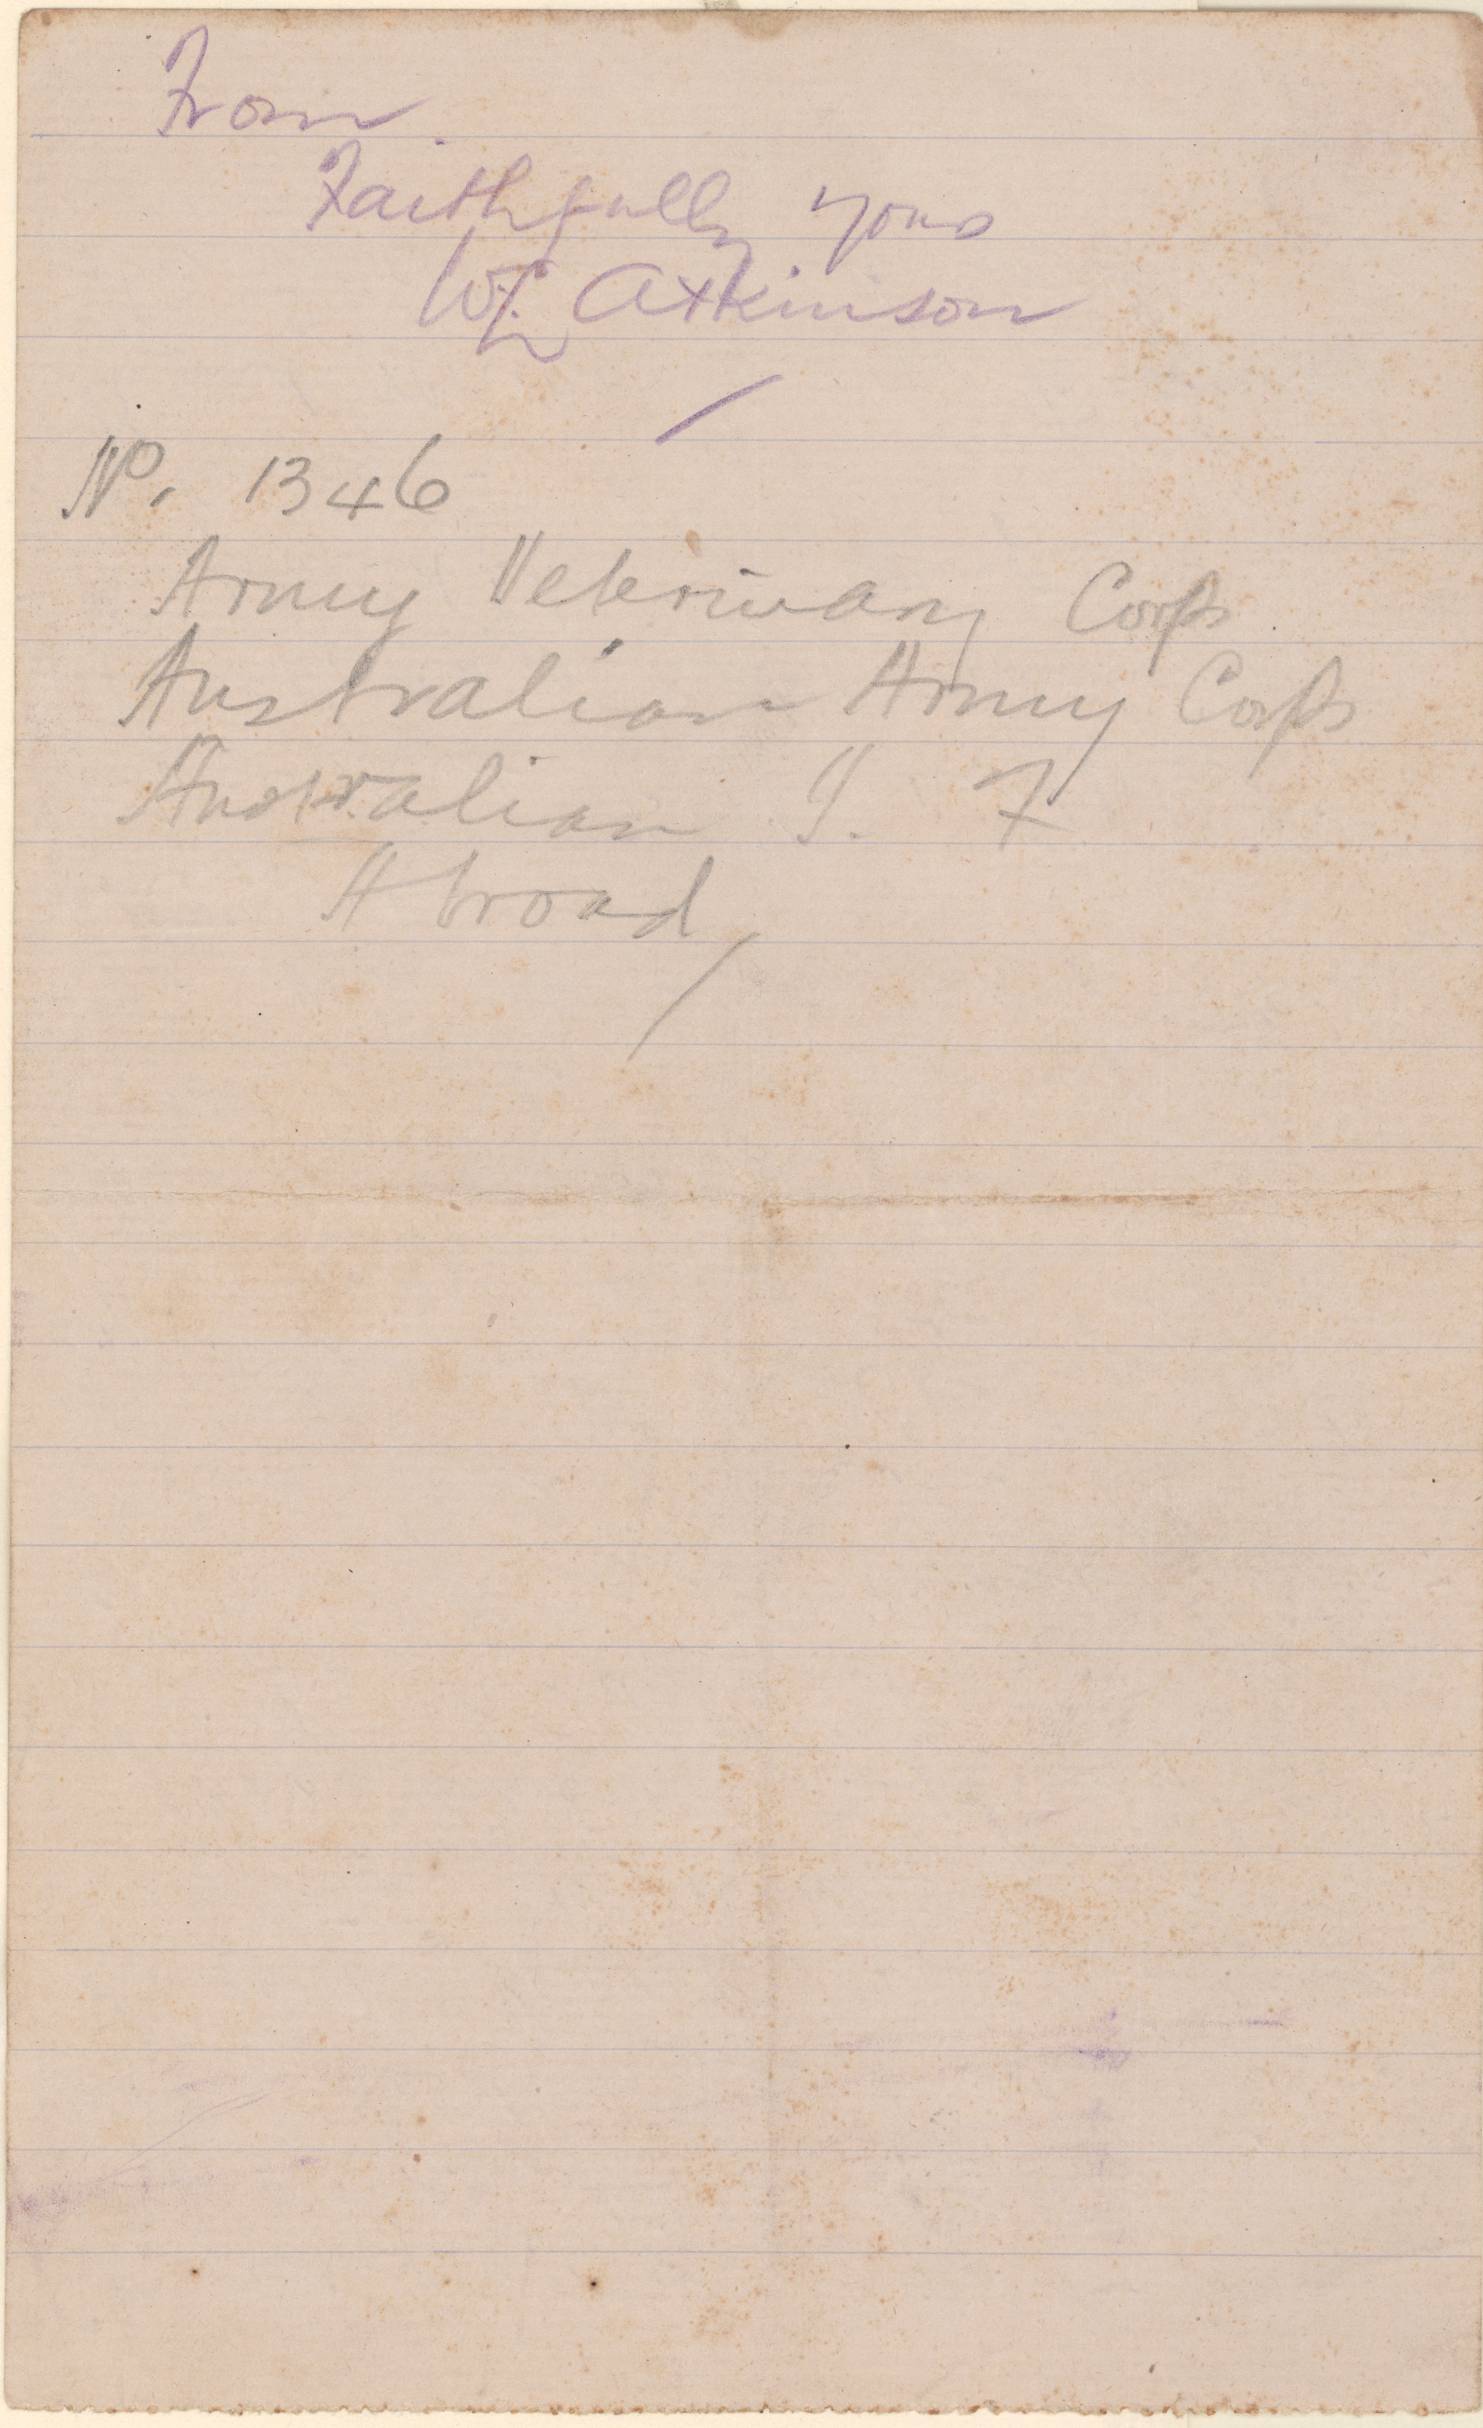 From
Faithfully yours
WL Atkinson
No. 1346
Army Veterinary Corps
Australian Army Corps
Australian I. F
Abroad